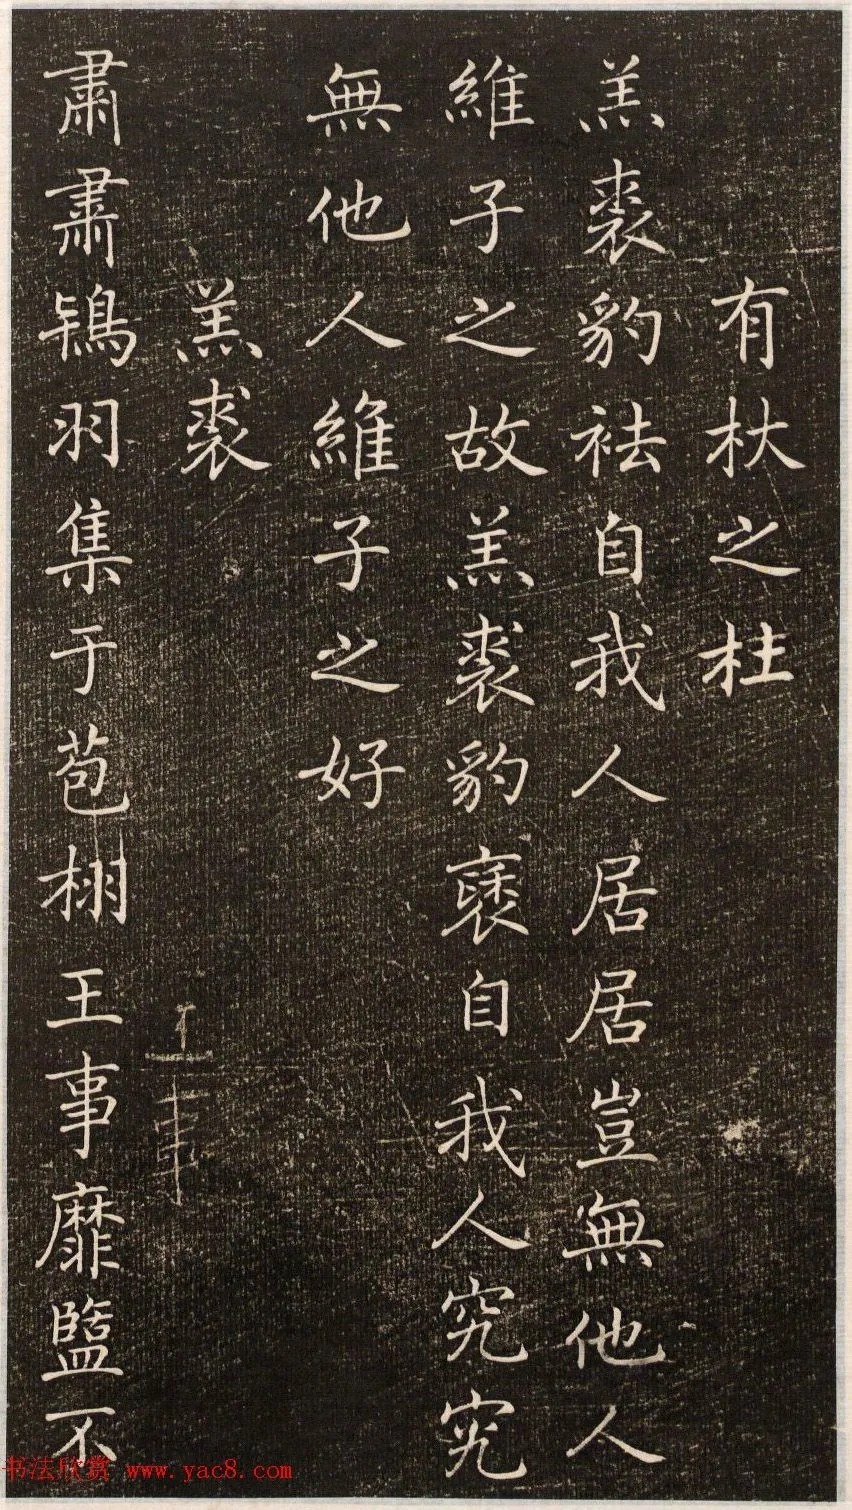 有杕之杜
羔裘豹袪自我人居居豈無他人
維子之故羔裘豹褎自我人究究
無他人維子之好
羔裘
肅肅鴇羽集于苞栩王事靡盬不
书法欣赏 www.yac8.com